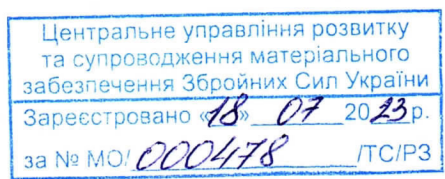 Центральне управління розвитку
та супроводження матеріального
забезпечення Збройних Сил України
Зареєстровано «18» 07 2023р.
за № МО/ 000478 /ТС/РЗ